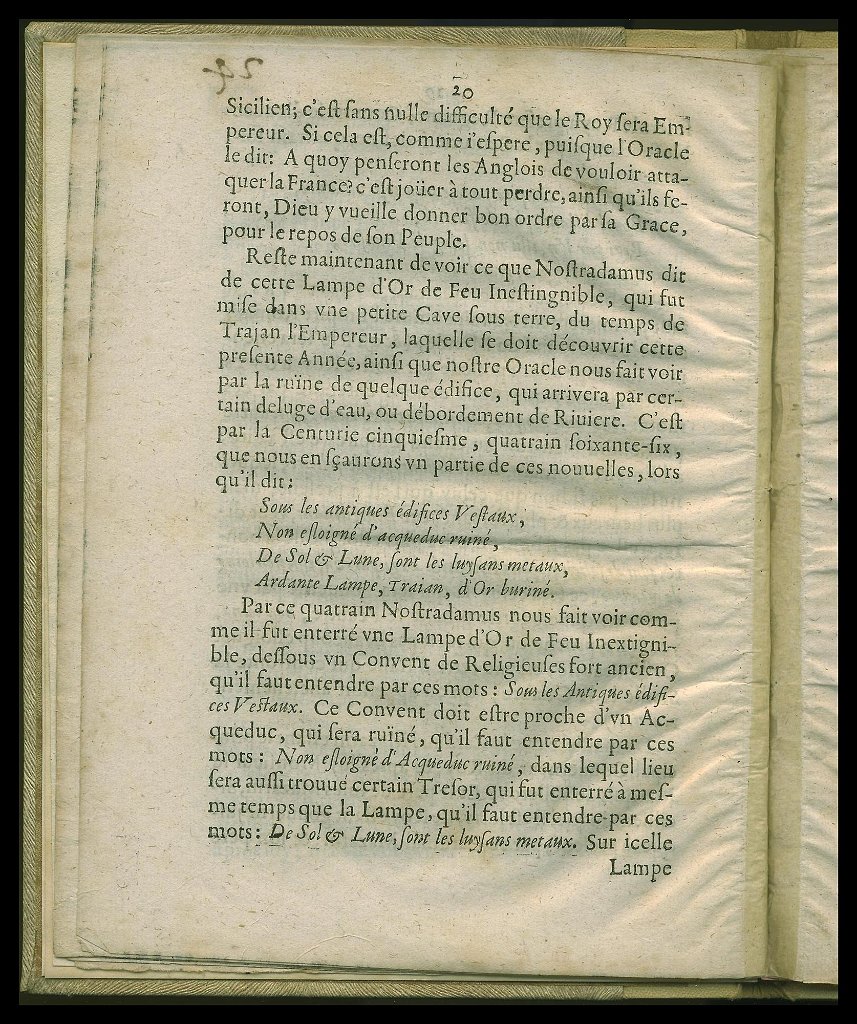 20
Sicilien; c'eſt ſans nulle difficulté que le Roy ſera Em-
pereur. Si cela eſt, comme i'eſpere, puiſque l'Oracle
le dit: A quoy penſeront les Anglois de vouloir atta-
quer la France? c'eſt joüer à tout perdre, ainſi qu'ils fe-
ront, Dieu y vueille donner bon ordre par ſa Grace,
pour le repos de ſon Peuple.
Reſte maintenant de voir ce que Noſtradamus dit
de cette Lampe d'Or de Feu Ineſtingnible, qui fut
miſe dans vne petite Cave ſous terre, du temps de
Trajan l'Empereur, laquelle ſe doit découvrir cette
preſente Année, ainſi que noſtre Oracle nous fait voir
par la ruïne de quelque édifice, qui arrivera par cer-
tain deluge d'eau, ou débordement de Riuiere. C'eſt
par la Centurie cinquieſme, quatrain ſoixante-ſix,
que nous en ſçaurons vn partie de ces nouuelles, lors
qu'il dit:
Sous les antiques édifices Veſtaux,
Non eſloigné d'acqueduc ruiné,
De Sol & Lune, ſont les luyſans metaux,
Ardante Lampe, Traian, d'Or buriné.
Par ce quatrain Noſtradamus nous fait voir com-
me il fut enterré vne Lampe d'Or de Feu Inextigni-
ble, deſſous vn Convent de Religieuſes fort ancien,
qu'il faut entendre par ces mots: Sous les Antiques édifi-
ces Veſtaux. Ce Convent doit eſtre proche d'vn Ac-
queduc, qui ſera ruïné, qu'il faut entendre par ces
mots: Non eſloigné d'Acqueduc ruiné, dans lequel lieu
ſera auſſi trouué certain Treſor, qui fut enterré à meſ-
me temps que la Lampe, qu'il faut entendre par ces
mots: De Sol & Lune, ſont les luyſans metaux. Sur icelle
Lampe